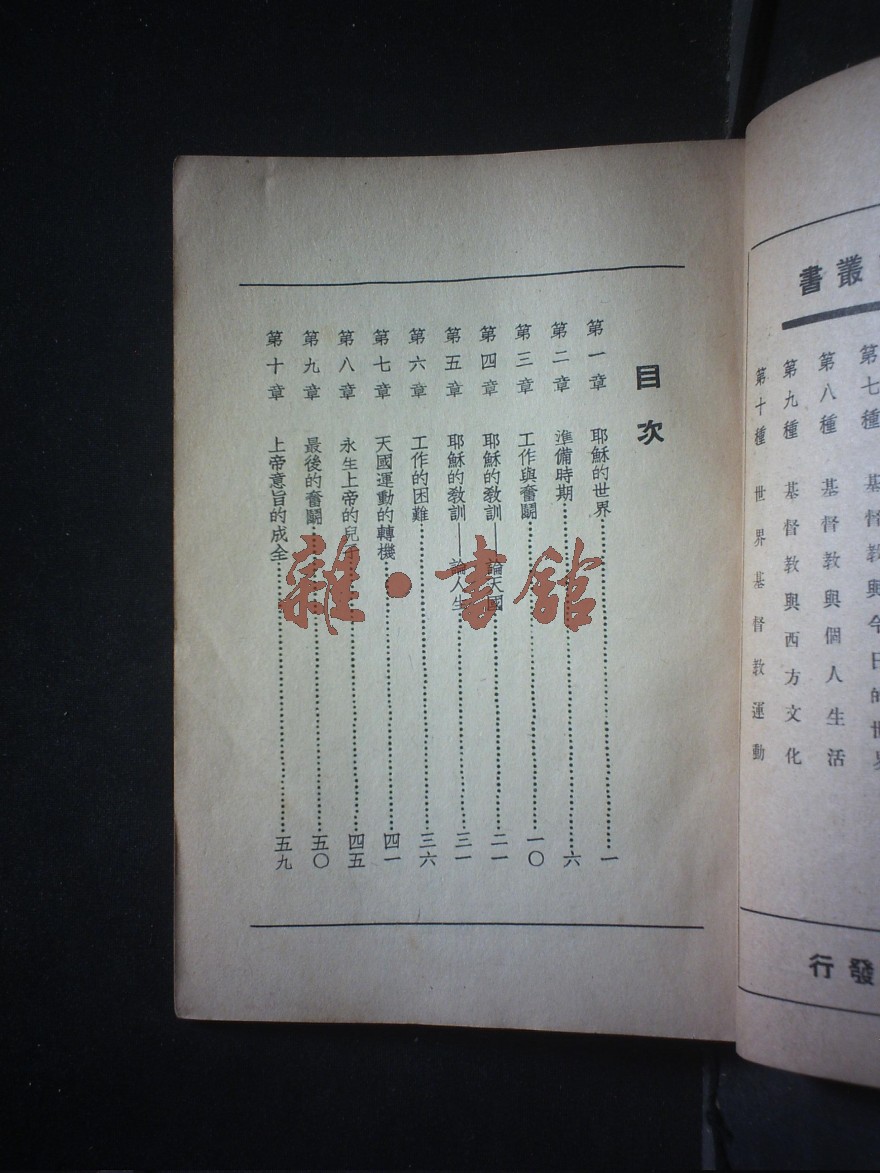 叢書
第七種 基督教與今日的世界
第八種 基督教與個人生活
第九種 基督教與西方文化
第十種 世界基督教運動
發行
目次
第一章 耶穌的世界………一
第二章 準備時期………六
第三章 工作與奮鬭………一〇
第四章 耶穌的教訓——論天國………二一
第五章 耶穌的教訓——論人生………三一
第六章 工作的困難………三六
第七章 天國運動的轉機………四一
第八章 永生上帝的兒子………四五
第九章 最後的奮鬭………五〇
第十章 上帝意旨的成全………五九
雜·書館